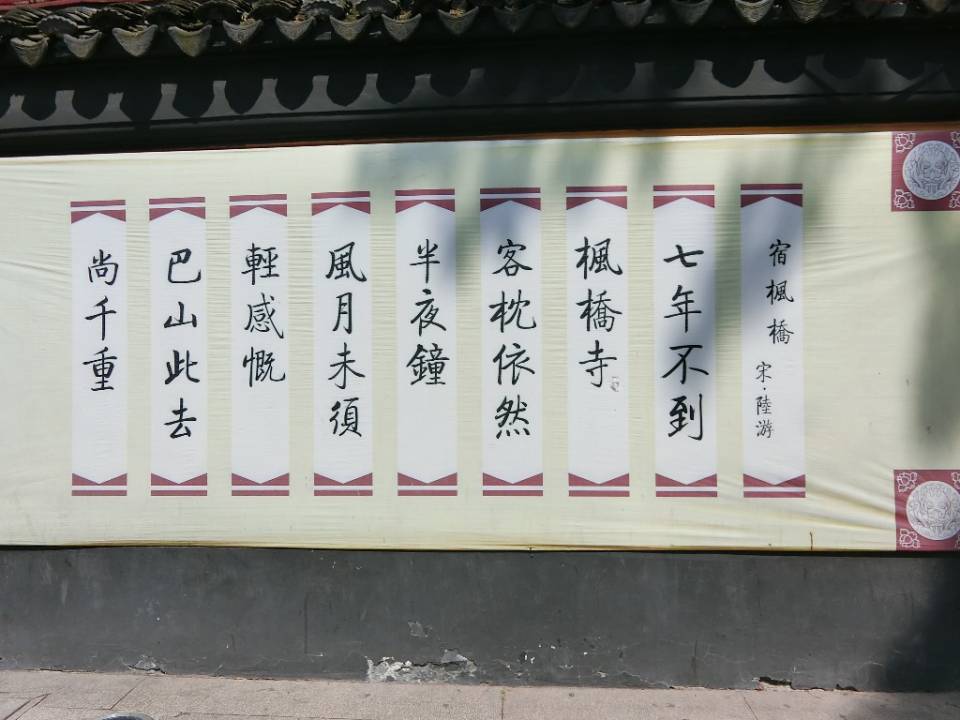 宿楓橋
宋·陸游
七年不到
楓橋寺
客枕依然
半夜鐘
風月未須
輕感慨
巴山此去
尚千重